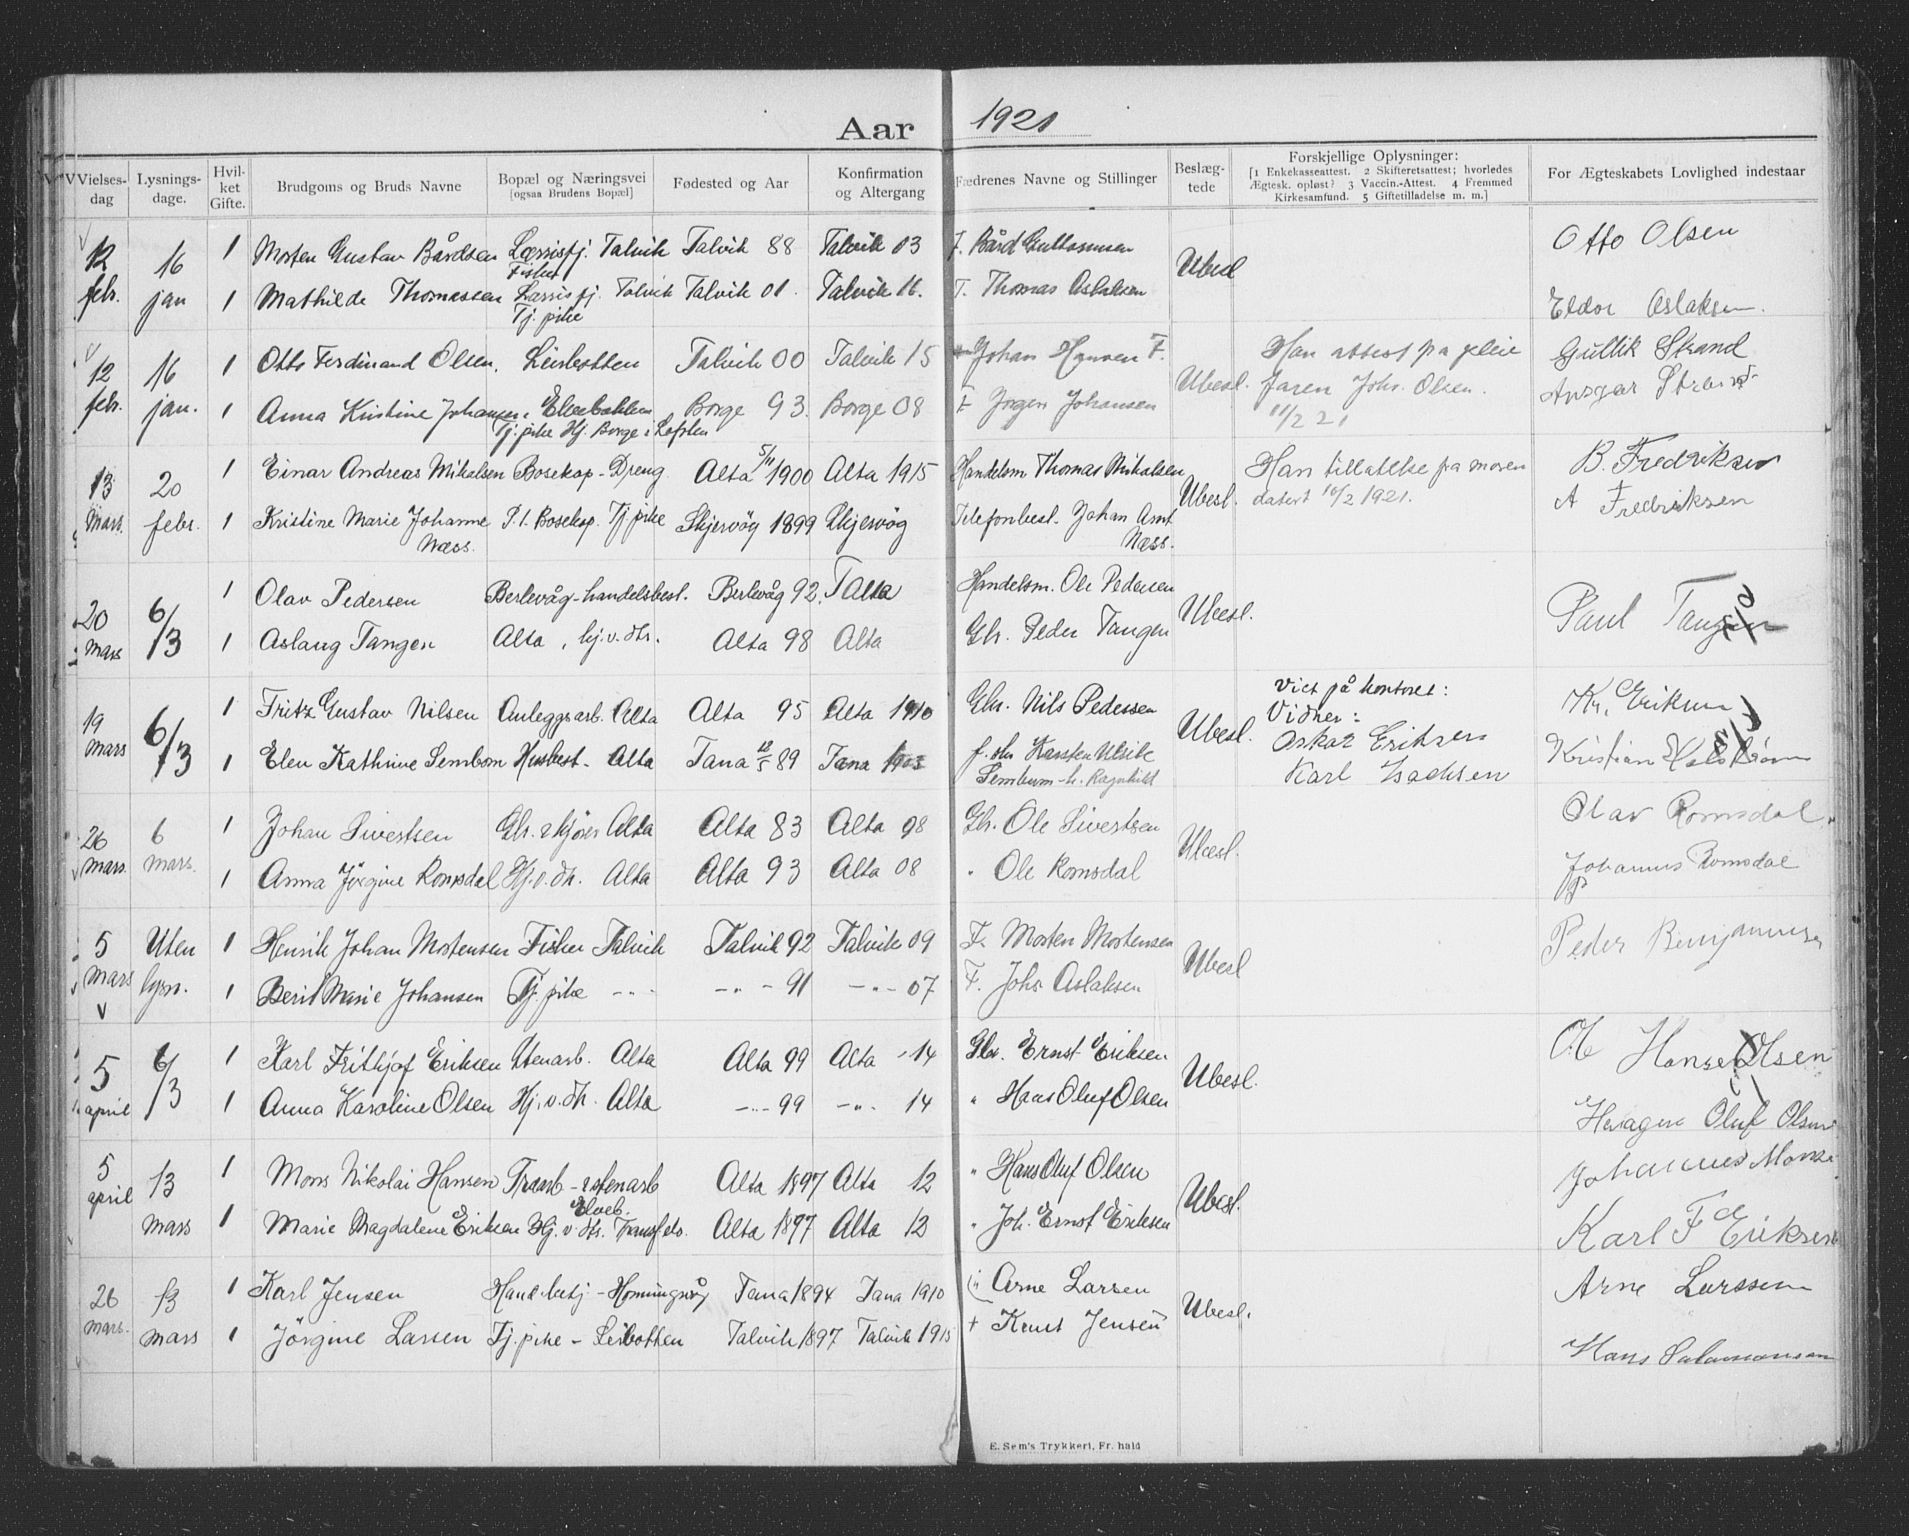 Aar 1921
Vielses-dag Lysnings-dage. Hvil-ket Gifte. Brudgoms og Bruds Navne Bopæl og Næringsvei [ogsaa Brudens Bopæl] Fødested og Aar Konfirmation og Altergang Fædrenes Navne og Stillinger Beslæg-tede Forskjellige Oplysninger: [1 Enkekasseattest. 2 Skifteretsattest; hvorledes Ægtesk. opløst? 3 Vaccin.-Attest. 4 Fremmed Kirkesamfund. 5 Giftetilladelse m. m.] For Ægteskabets Lovlighed indestaar
12 febr. 16 jan 1 Morten Gustav Bårdsen Talvik Fisker Talvik 88 Talvik 03 F. Bård Ubesl Otto Olsen
1 Mathilde Thomassen Talvik Tj. pike Talvik 01. Talvik 16. F. Thomas Aslaksen Eldor Aslaksen.
12 febr. 16 jan. 1 Otto Ferdinand Olsen, Leirbotten Talvik 00 Talvik 15 Johan Hansen F. Ubesl. Han attest på pleie Gullik Strand
1 Anna Kristine Johansen, Elvebakken Tj. pike Hj. Borge i Lofoten Borge 93. Borge 08 F Jørgen Johansen faren Johs. Olsen. 11/2 21 Ansgar Strand
13 Mars. 20 febr. 1 Einar Andreas Mikalsen Bosekop - Dreng Alta 5/11 1900 Alta 1915 Handelsm Thomas Mikalsen Ubesl. Han tillatelse fra moren B. Fredriksen
1 Kristine Marie Johanne Næss. P.t. Bosekop. Tj. pike Skjervøy 1899 Skjervøy Telefonbest. Johan Arnt Næss. datert 10/2 1921. A Fredriksen
20 Mars 6/3 1 Olav Pedersen Berlevåg - handelsbest. Berlevåg 92, Alta Handelsm. Ole Pedersen Ubesl. Paul Tangen
1 Aslaug Tangen Alta, hj. v. dtr. Alta 98 Alta Gbr. Peder Tangen
19 Mars 6/3 1 Fritz Gustav Nilsen Anleggsarb. Alta Alta 95 Alta 1910 Gbr. Nils Pedersen Ubesl. Viet på kontoret: Vidner: Kr. Eriksen
1 Elen Kathrine Sembom Husbest - Alta Tana 12/5 89 Tana 1903 Karsten Ulrik Oskar Eriksen Karl Isachsen Kristian
26 Mars. 6 Mars. 1 Johan Sivertsen Gbr. Alta Alta 83 Alta 98 Gbr. Ole Sivertsen Ubesl. Olav Romsdal
1 Anna Jørgine Romsdal Hj. v. dtr. Alta Alta 93 Alta 08 " Ole Romsdal Johannes Romsdal
5 Mars Uten lysn. 1 Henrik Johan Mortensen Fisker Talvik Talvik 92 Talvik 09 F. Morten Mortensen Ubesl Peder
1 Berit Marie Johansen Tj. pike - " - - " - 91 - " - 07 F. Johs Aslaksen
5 april 6/3 1 Karl Frithjof Eriksen Utenarb. Alta Alta 99 Alta - 14 Gbr. Ernst Eriksen Ubesl. Ole Hansen Olsen
1 Anna Karoline Olsen Hj. v. dtr. Alta - " - 99 - " - 14 " Hans Oluf Olsen Oluf Olsen
5 april 13 Mars 1 Mons Nikolai Hansen Alta 1897 Alta 12 " Hans Oluf Olsen Ubesl. Johannes
1 Marie Magdalene Eriksen Hj. v. dtr. Alta 1897 Alta 12 " Joh. Ernst Eriksen Karl F Eriksen
26 Mars. 13 Mars 1 Karl Jensen Honningsvåg Tana 1894 Tana 1910 Arne Larsen Ubesl. Arne Larssen
1 Jørgine Larsen Tj. pike - Leirbotten Talvik 1897 Talvik 1915 + Knut Jensen Hans Salamonsen
E. Sem's Trykkeri, Fr. hald